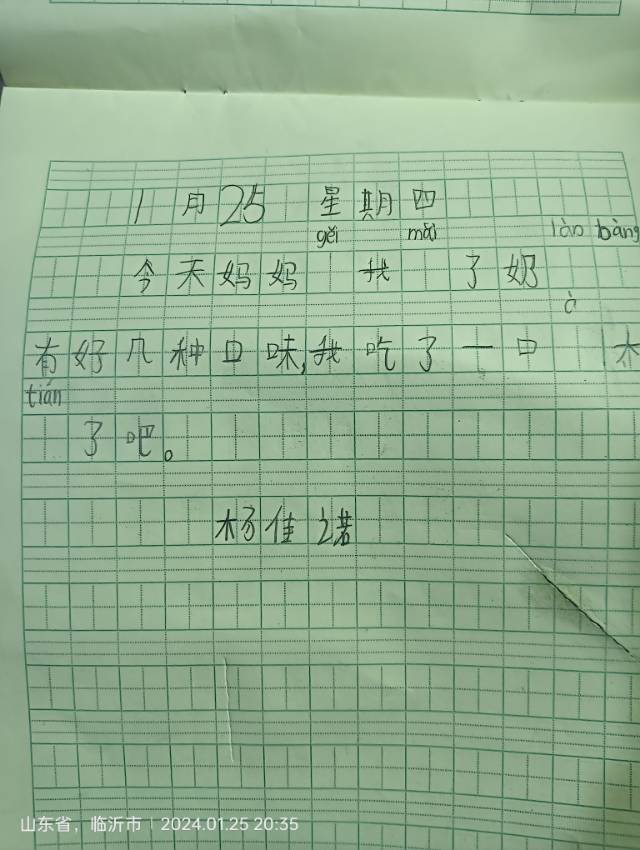 1月25 星期四
gěi mǎi
今天妈妈 我 了奶
à
有好几种口味,我吃了一口 太
tián
了吧。
杨佳诺
山东省，临沂市 | 2024.01.25 20:35